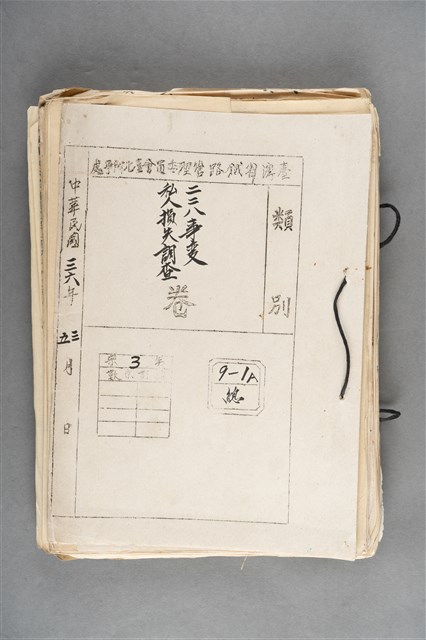 臺灣省鉄路管理委員會臺北辦事處
類別
二二八事變
私人損失調查
卷
中華民國三六年三五月 日
3
9-1A
總